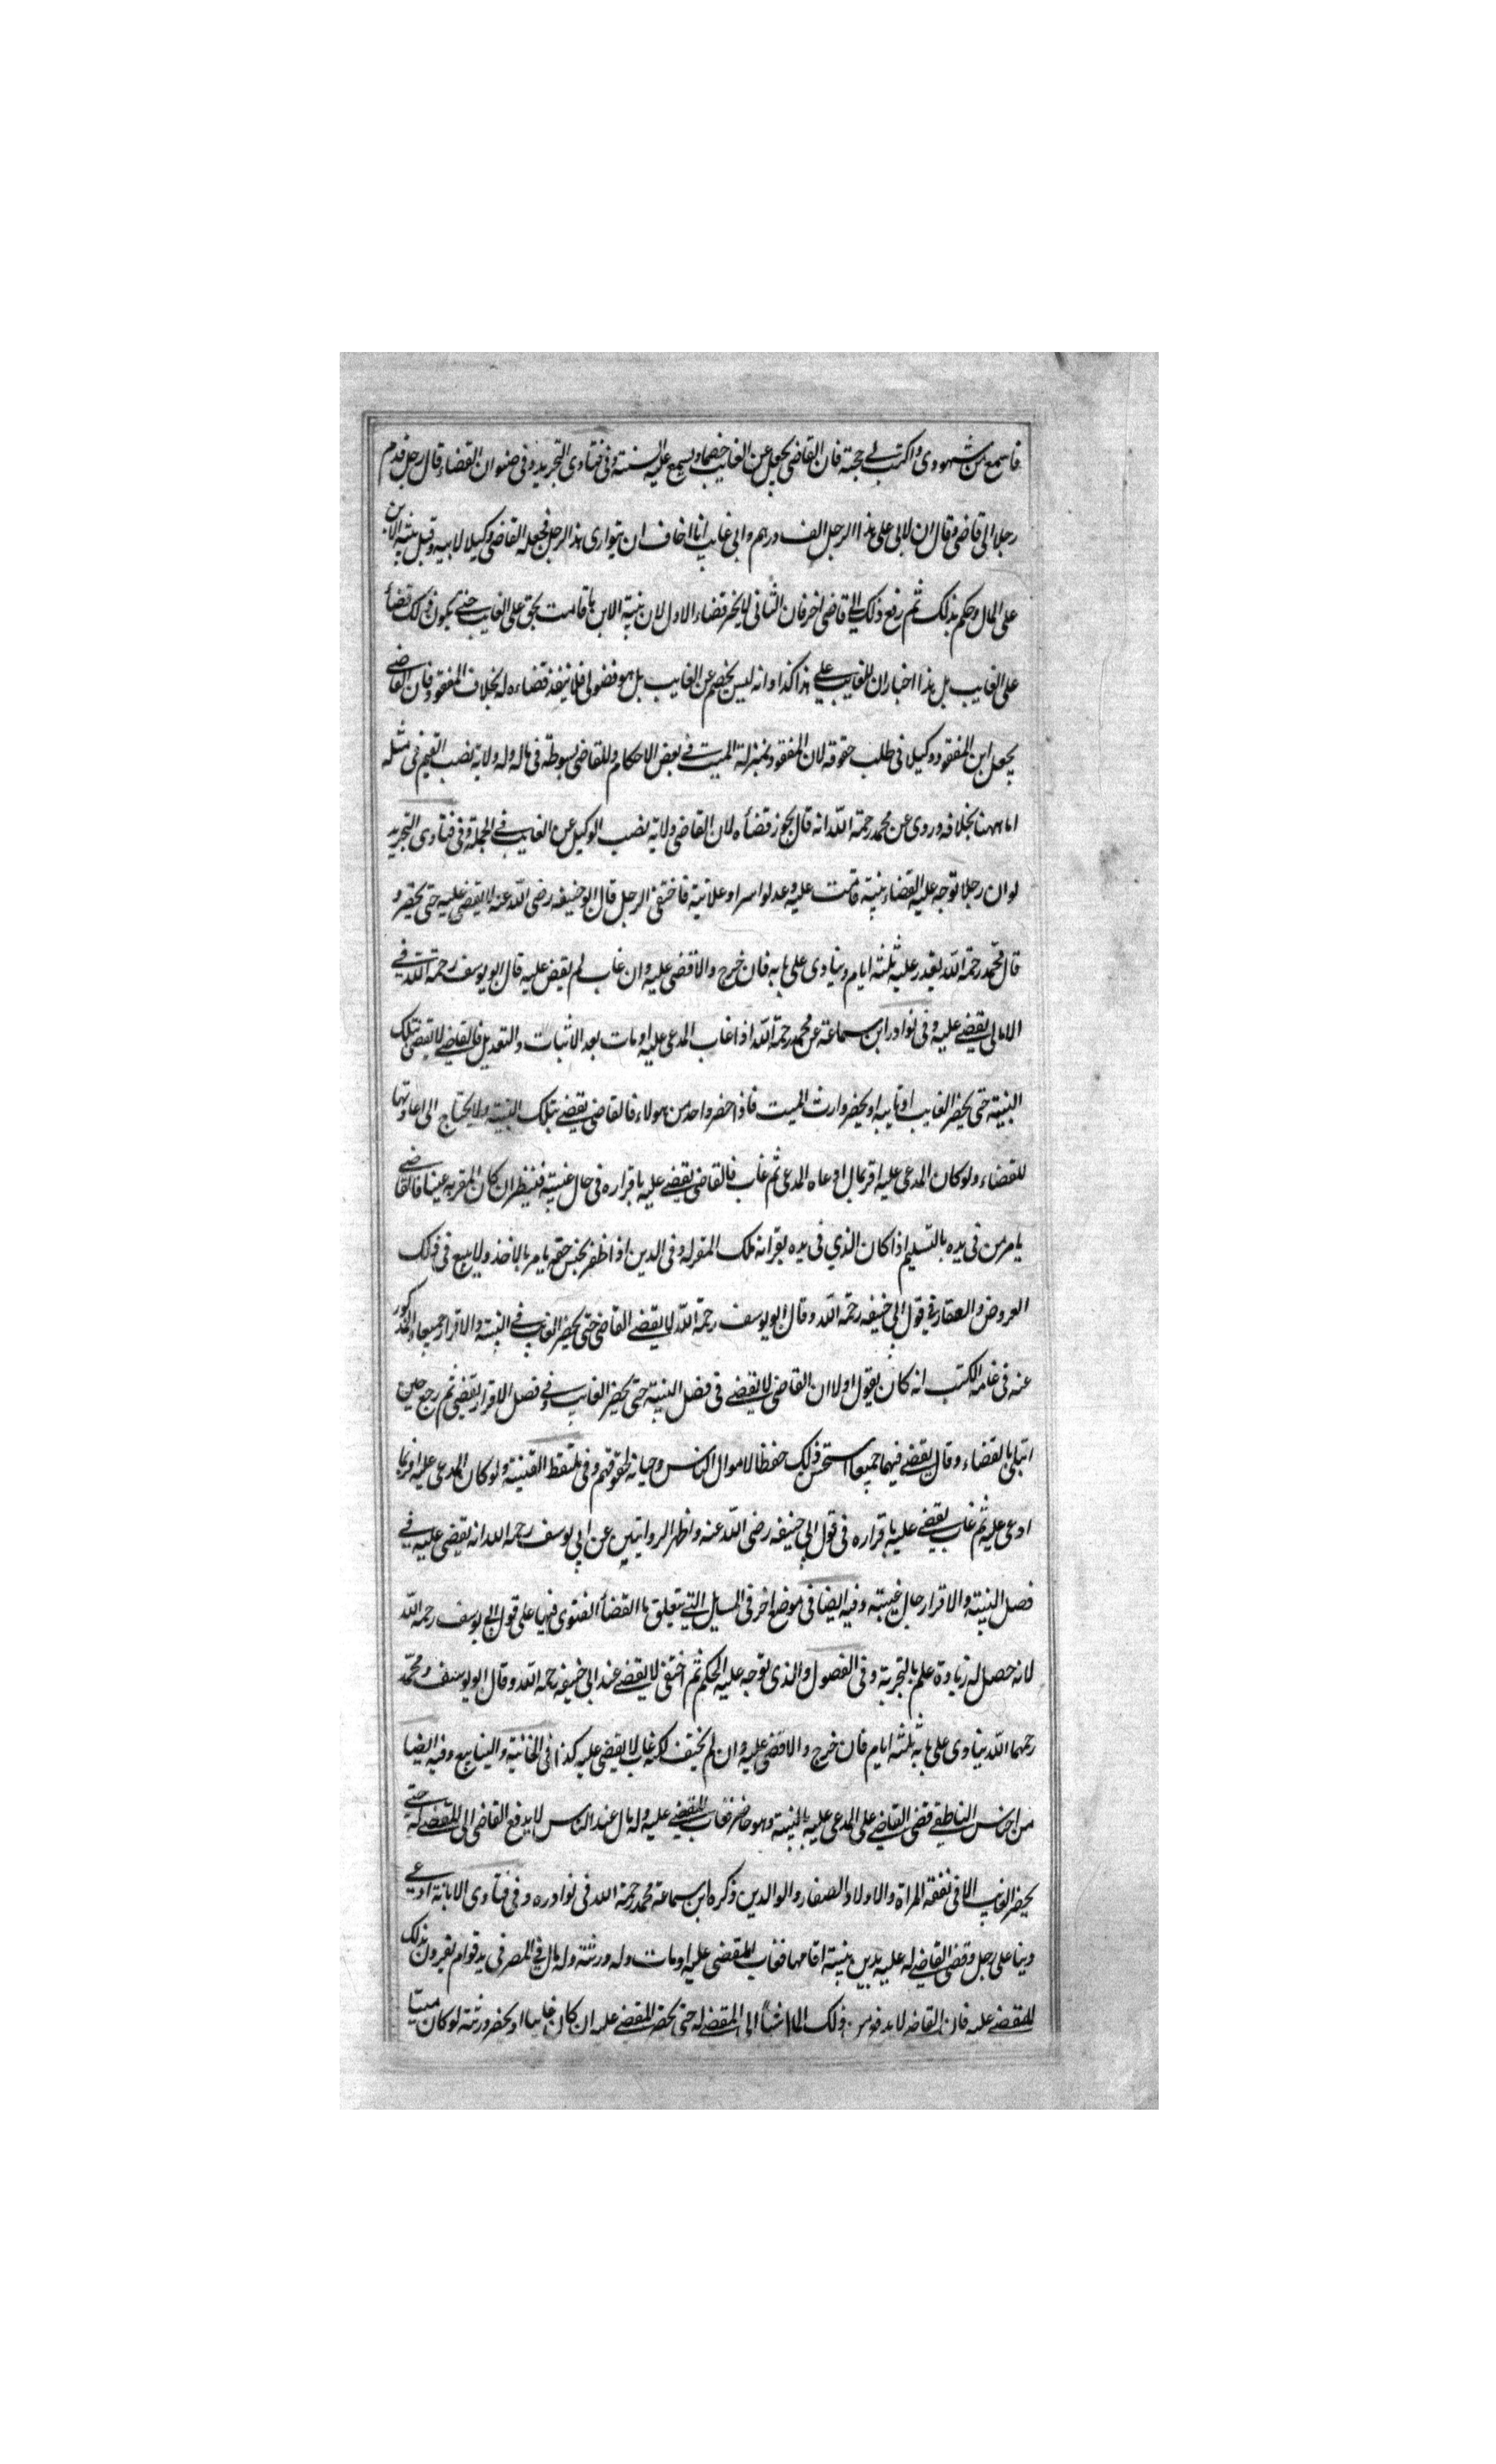 فاسمع من شهودى واكتب لى حجة فان القاضى يجعل عن الغايب خصما ويسمع عليه البينة وفى فتاوى التجريد وفى صنوان القضاء قال رجل قدم
رجلا الى قاضى وقال ان لابى على هذا الرجل الف درهم وابى غايب انا اخاف ان يتوارى هذا الرجل فجعله القاضى وكيلا لابيه وقبل بينة الابن
على المال وحكم بذلك ثم رفع ذلك الى قاضى اخر فان الثانى لا يجز قضاء الاول لان بينة الابن ما قامت بحق على الغايب حتى يكون ذلك قضأ
على الغايب بل هذا اخبار ان للغايب على هذا كذا وانه ليس بخصم عن الغايب بل هو فضولى فلا ينفذ قضاءه له بخلاف المفقود فان القاضى
يجعل ابن المفقود وكيلا فى طلب حقوقه لان المفقود بمنزلة الميت فى بعض الاحكام وللقاضى بسوطة فى ماله وله ولاية نصب القيم فى مثله
اما ههنا بخلافه وروى عن محمد رحمة الله انه قال يجوز قضأه لان القاضى ولاية نصب الوكيل عن الغايب فى الجملة وفى فتاوى التجريد
لو ان رجلا توجه عليه القضاء ببينة قامت عليه وعدلوا سرا وعلانية فاختفى الرجل قال ابو حنيفه رضى الله عنه لا يقضى عليه حتى يحضر و
قال محمد رحمة الله يقدر عليه ثلثة ايام وينادى على بابه فان خرج والا قضى عليه وان غاب لم يقض عليه قال ابو يوسف رحمة الله فى
الامالى يقضى عليه وفى نوادر ابن سماعة عن محمد رحمة الله اذا غاب المدعى عليه او مات بعد الاثبات والتعديل فالقاضى لا يقضى بتلك
البينة حتى يحضر الغايب او نايبه او يحضر وارث الميت فاذا حضر واحد من هولاء فالقاضى يقضى بتلك البينة ولا يحتاج الى اعادتها
للقضاء ولو كان المدعى عليه اقر بمال ادعاه المدعى ثم غاب فالقاضى يقضى عليه باقراره فى حال غيبته فينظر ان كان المقر به عينا فالقاضى
يامر من فى يده بالتسليم اذا كان الذي فى يده يقر انه ملك المقر له وفى الدين اذا ظفر بجنس حقه يامر بالاخذ ولا يبيع فى ذلك
العروض والعقار فى قول ابى حنيفه رحمة الله وقال ابو يوسف رحمة الله لا يقضى القاضى حتى يحضر الغايب فى البينة والاقرار جميعا والمذكور
عنه فى عامة الكتب انه كان يقول اولا ان القاضى لا يقضى فى فصل البينة حتى يحضر الغايب وفى فصل الاقرار يقضى ثم رجع حين
ابتلى بالقضاء وقال يقضى فيهما جميعا استحسن ذلك حفظا لاموال الناس وصيانة لحقوقهم وفى ملتقط القنية ولو كان المدعى عليه اقر بما
ادعى عليه ثم غاب يقضى عليه باقراره فى قول ابى حنيفه رضى الله عنه واظهر الروايتين عن ابى يوسف رحمه الله انه يقضى عليه فى
فصل البينة والاقرار حال غيبته وفيه ايضا فى موضع اخر فى المسايل التى يتعلق بالقضأ الفتوى فيها على قول ابى يوسف رحمه الله
لانه حصل له زيادة علم بالتجربة وفى الفصول والذى توجه عليه الحكم ثم اختفى لا يقضى عند ابى حنيفه رحمه الله وقال ابو يوسف ومحمد
رحمهما الله ينادى على بابه ثلثه ايام فان خرج والا قضى عليه وان لم يختف لكنه غاب لا يقضى عليه كذا فى الخانية والينابيع وفيه ايضا
من اجناس الناطفى قضى القاضى على المدعى عليه بالبينة وهو حاضر فغاب المقضى عليه وله مال عند الناس لا يدفع القاضى الى المقضى له حتى
يحضر الغايب الا فى نفقه المراة والاولاد الصغار والوالدين ذكره ابن سماعة محمد رحمة الله فى نوادره وفى فتاوى الابانة ادعى
دينا على رجل وقضى القاضى له عليه بدين ببينة اقامها فغاب المقضى عليه او مات وله ورثته وله مال فى المصر فى يد قوام يقرون بذلك
للمقضى عليه فان القاضى لا يدفع من ذلك المال شيأ الى المقضى له حتى يحضر المقضى عليه ان كان غايبا او يحضر ورثته لو كان ميتا